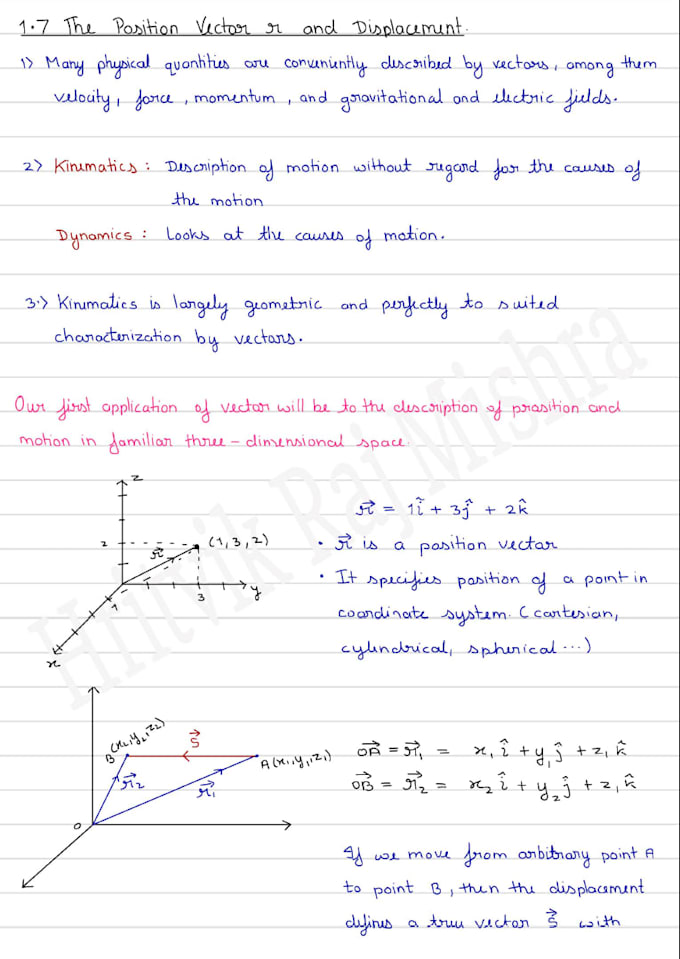 1.7 The Position Vector r and Displacement.
1) Many physical quantities are conveniently described by vectors, among them
velocity, force, momentum, and gravitational and electric fields.
2) Kinematics : Description of motion without regard for the causes of
the motion
Dynamics : Looks at the causes of motion.
3.) Kinematics is largely geometric and perfectly to suited
characterization by vectors.
Our first application of vector will be to the description of prosition and
motion in familiar three-dimensional space.
z
2
r⃗
(1, 3, 2)
1
3
y
x
r⃗ = 1î + 3ĵ + 2k̂
• r⃗ is a position vector
• It specifies position of a point in
coordinate system. (cartesian,
cylindrical, spherical ...)
B (x₂, y₂, z₂)
S⃗
A (x₁, y₁, z₁)
r⃗₂
r⃗₁
O
OA⃗ = r⃗₁ = x₁ î + y₁ ĵ + z₁ k̂
OB⃗ = r⃗₂ = x₂ î + y₂ ĵ + z₁ k̂
If we move from arbitrary point A
to point B, then the displacement
defines a true vector S⃗ with
Hritvik Raj Mishra